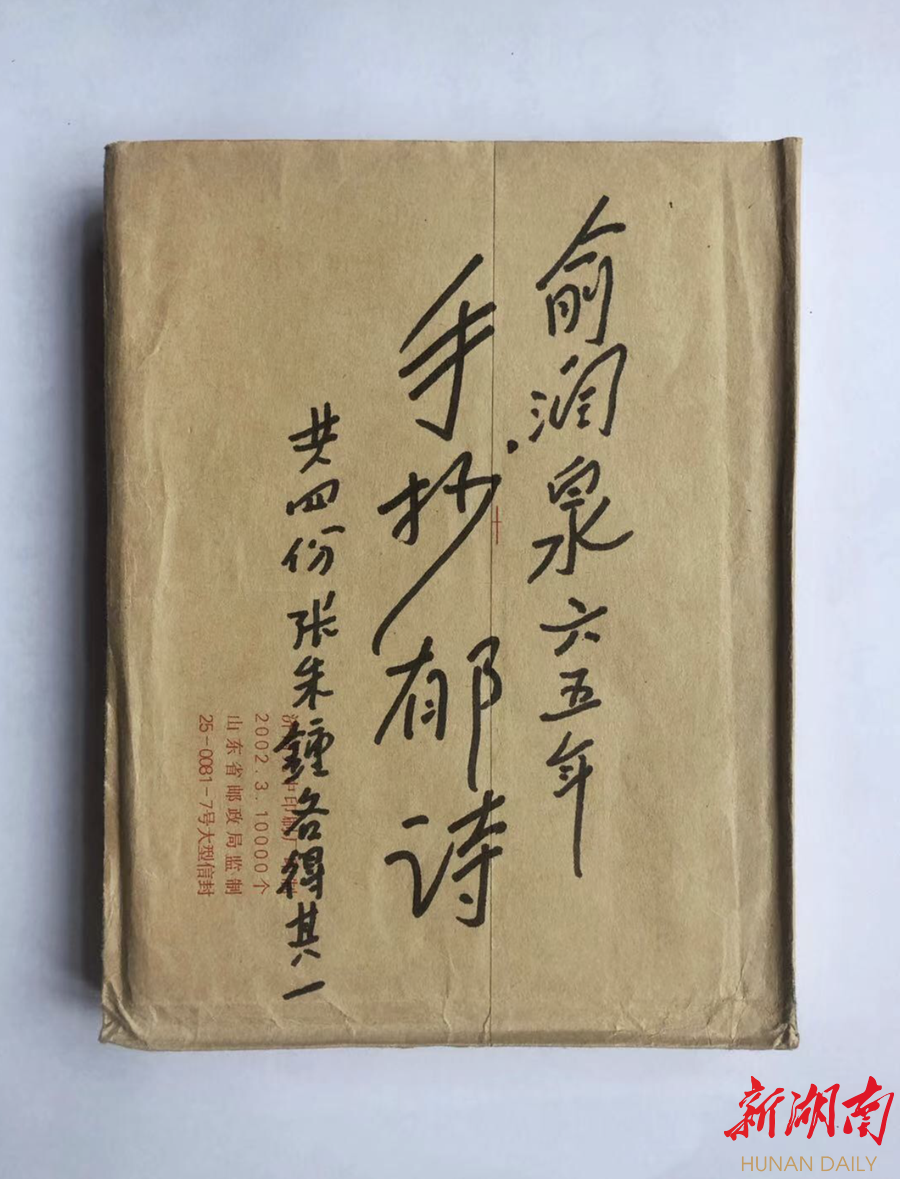 俞润泉六五年
手抄郁诗
共四份张朱鍾各得其一
2002.3.10000个
山东省邮政局监制
25-0081-7号大型信封
新湖南
HUNAN DAILY